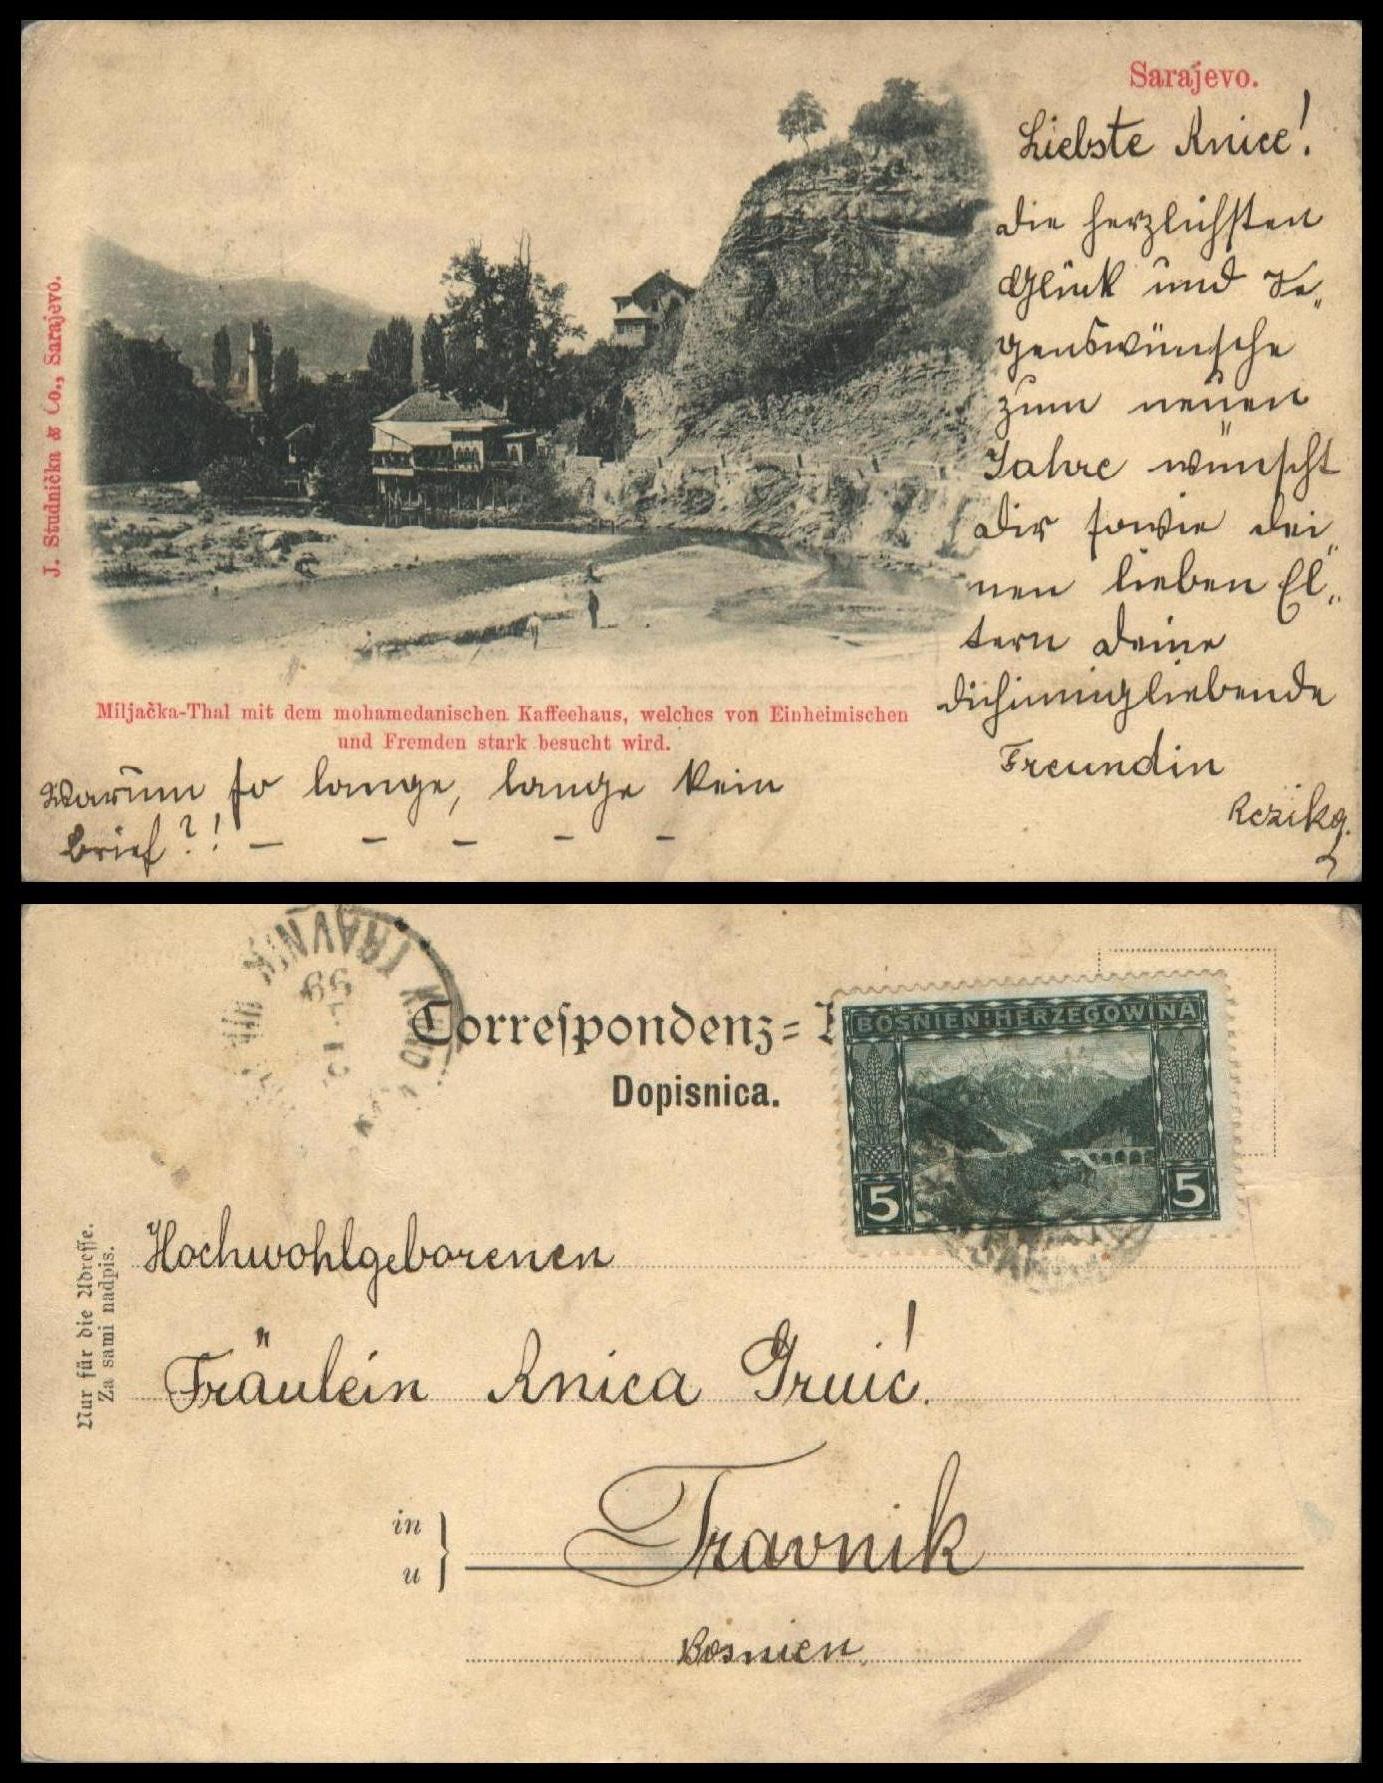 Sarajevo.
Liebste Anice!
die herzlichsten
Glück und Se„
genswünsche
zum neuen
Jahre wünscht
dir sowie dei„
nen lieben El„
tern deine
dichinnigliebende
Freundin
Rezika.
J. Studnička & Co., Sarajevo.
Miljačka-Thal mit dem mohamedanischen Kaffeehaus, welches von Einheimischen
und Fremden stark besucht wird.
Warum so lange, lange kein
brief?! – – – – –
TRAVNIK
99
Correspondenz=
Dopisnica.
BOSNIEN-HERZEGOWINA
5 5
Nur für die Adresse.
Za sami nadpis.
Hochwohlgeborenen
Fräulein Anica Gruić!
in
u
Travnik
Bosnien.